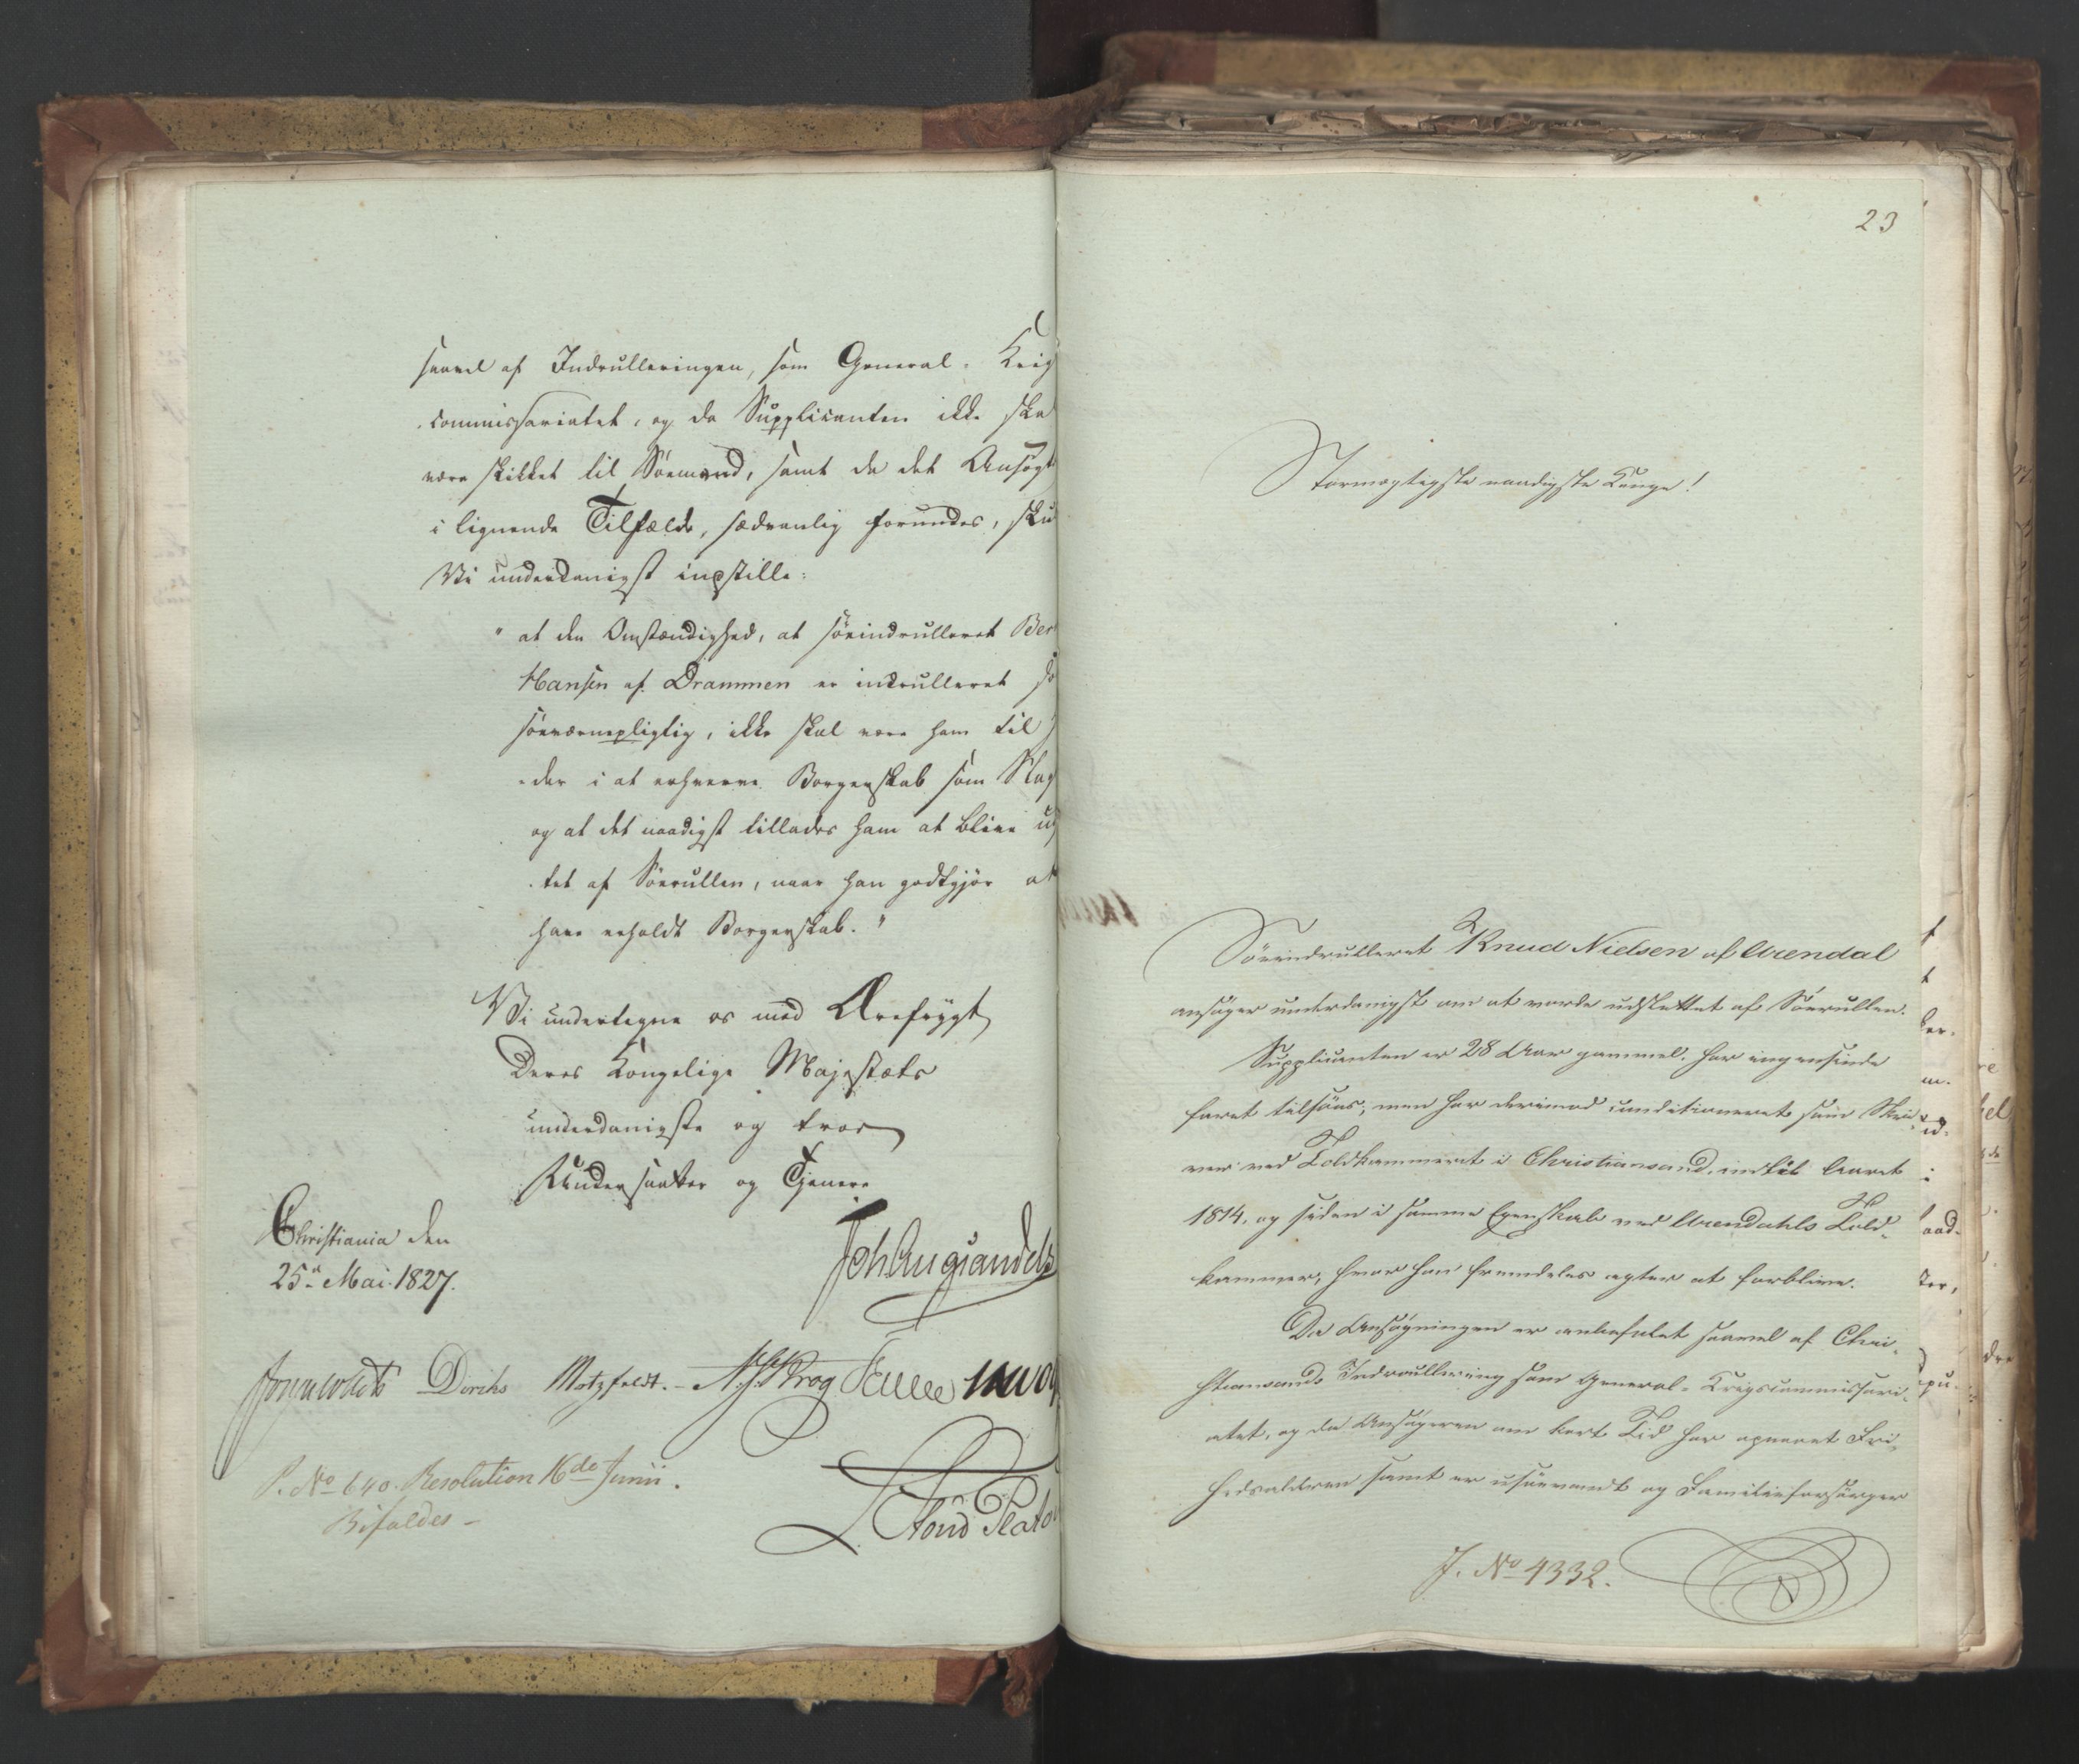 saavel af Indrulleringen, som General-Krig
commissariatet, og da Supplicanten ikke ska
være skikket til Søemand, samt da det Ansøgt
i lignende Tilfælde, sædvanlig forundes, sku
Vi underdanigst indstille:
"at den Omstændighed, at søeindrulleret Ber
Hansen af Drammen er indrulleret so
søeværnepligtig, ikke skal være ham til
-der i at erhverve Borgerskab som Slag
og at det naadigst tillades ham at blive ud
-tet af Søerullen, naar han godtgjør at
have erholdt Borgerskab."
Vi undertegne os med Ærefrygt
Deres Kongelige Majestæts
underdanigste og troe
Undersaatter og Tjenere
Christiania den
25de Mai 1827.
Joh Aug Sandels
Diriks Motzfeldt. Krog
P. No 640. Resolution 16de Junii.
Bifaldes -
23
Stormægtigste naadigste Konge!
Søeindrulleret Knud Nielsen af Arendal
ansøger underdanigst om at vorde udslettet af Søerullen.
Supplicanten er 28 Aar gammel, har ingensinde
faret tilsøes, men har derimod conditioneret som Skri-
ver ved Toldkammeret i Christiansand, indtil Aaret
1814, og siden i samme Egenskab ved Arendahls Told-
kammer, hvor han fremdeles agter at forblive.
Da Ansøgningen er anbefalet saavel af Chri-
stiansands Indroullering som General-Krigscommissari-
atet, og da Ansøgeren om kort Tid har opnaaet Fri-
hedsalderen samt er usøevandt og Familieforsørger
J. No 4332.